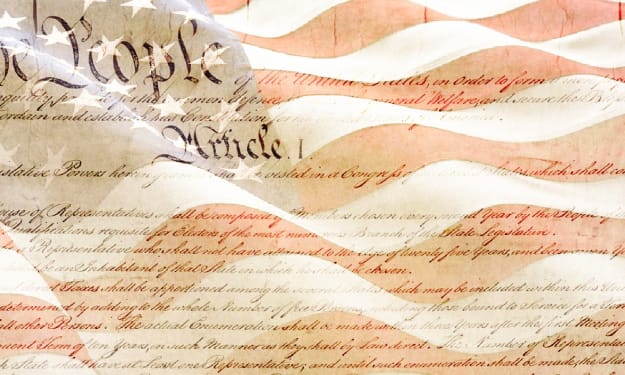 e People
of the United States, in order to form a
quility, for the common Defence, onal Welfare, and secure the Bless
ordain and establish this Constitution
Article. I
islative Powers herein gran vested in a Congress of States, which shall con
ouse of Representatives shall be composed of Members chosen every second Year by the People
Qualifications requisite for Electors of the most numerous Branch of the State Legislature.
Representative who shall not have attained to the Age of twenty five Years, and been seven Yea
be an Inhabitant of that State in which he shall be chosen.
direct Taxes shall be apportioned among the several States which may be included within this Un
determined by adding to the whole Number of free Persons, including those bound to Service for a Term
all other Persons. The actual Enumeration shall be made within three Years after the first Meeting
quent Term of ten Years, in such Manner as they shall by Law direct. The Number of Representat
h State shall have at Least one Representative; and until such enumeration shall be made, the State